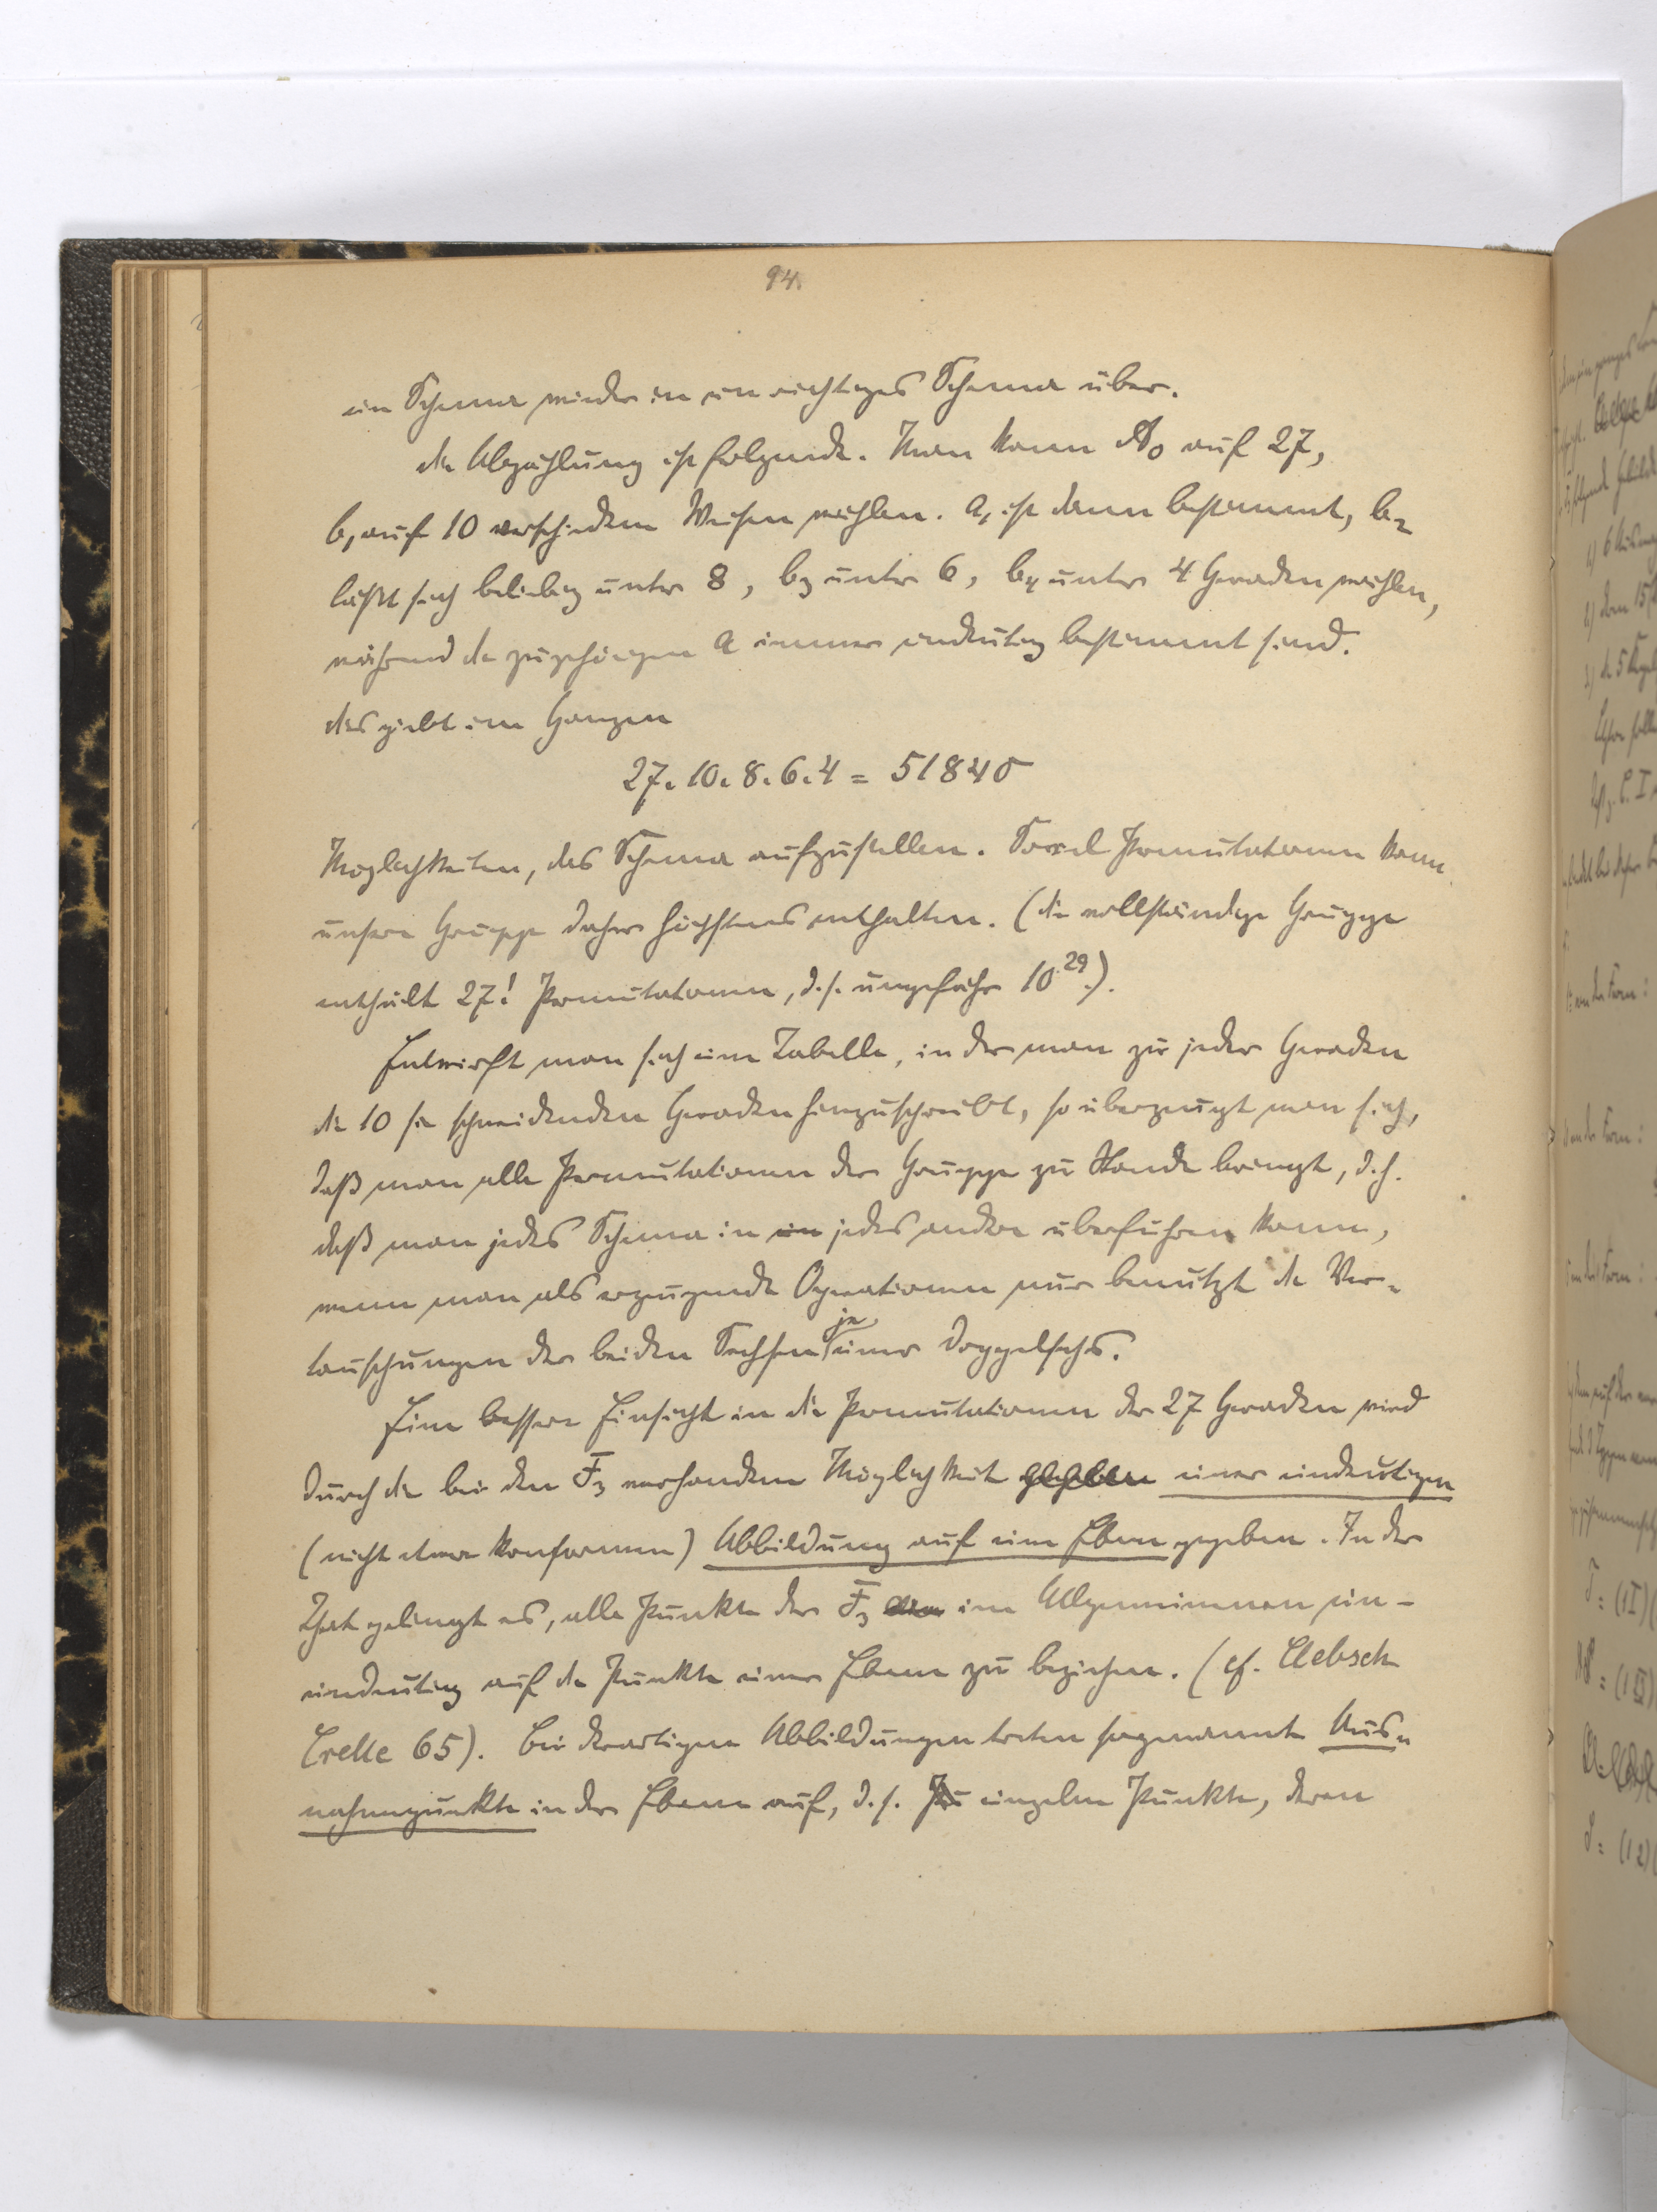 94.
ein Schema wieder in ein richtiges Schema über.
die Abzählung ist folgende. Man kann A₀ auf 27,
b₁ auf 10 verschiedene Weisen wählen. a₁ ist dann bestimmt, b₂
läßt sich beliebig unter 8, b₃ unter 6, b₄ unter 4 Geraden wählen,
während die zugehörigen a immer eindeutig bestimmt sind.
das giebt im Ganzen
27.10.8.6.4 = 51840
Möglichkeiten, das Schema aufzustellen. Soviel Permutationen kann
unsere Gruppe daher höchstens enthalten. (die vollständige Gruppe
enthält 27! Permutationen, d.s. ungefähr 10²⁹.).
Entwirft man sich eine Tabelle, in der man zu jeder Geraden
die 10 sie schneidenden Geraden hinzuschreibt, so überzeugt man sich,
daß man alle Permutationen der Gruppe zu Stande bringt, d.h.
daß man jedes Schema in ein jedes andere überführen kann,
wenn man als erzeugende Operationen nur benutzt die Ver-
tauschungen der beiden Sechsen je einer Doppelsechs.
Eine bessere Einsicht in die Permutationen der 27 Geraden wird
durch die bei den F₃ vorhandene Möglichkeit gegeben einer eindeutigen
(nicht etwa konformen) Abbildung auf eine Ebene gegeben. In der
That gelingt es, alle Punkte der F₃ im Allgemeinen ein-
eindeutig auf die Punkte einer Ebene zu beziehen. (cf. Clebsch
Crelle 65). Bei derartigen Abbildungen treten sogenannte Aus-
nahmepunkte in der Ebene auf, d.s. Pu einzelne Punkte, deren